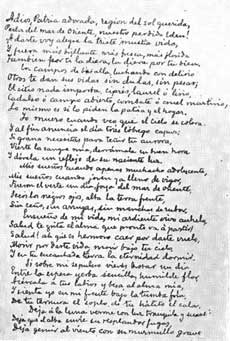 Adios, Patria adorada, region del sol querida,
Perla del mar de Oriente, nuestro perdido Eden!
A darte voy alegre la triste mustia vida,
Y fuera más brillante más fresca, más florida
Tambien por ti la diera, la diera por tu bien.
En campos de batalla, luchando con delirio
Otros te dan sus vidas sin dudas, sin pesar;
El sitio nada importa, ciprés, laurel ó lirio,
Cadalso ó campo abierto, combate ó cruel martirio,
Lo mismo es si lo piden la patria y el hogar.
Yo muero cuando veo que el cielo se colora
Y al fin anuncia el dia tras lóbrego capuz;
Si grana necesitas para teñir tu aurora,
Vierte la sangre mia, derrámala en buen hora
Y dórela un reflejo de su naciente luz.
Mis sueños cuando apenas muchacho adolescente,
Mis sueños cuando joven ya lleno de vigor,
Fueron el verte un dia joya del mar de oriente
Secos los negros ojos, alta la tersa frente,
Sin ceño, sin arrugas, sin manchas de rubor.
Ensueño de mi vida, mi ardiente vivo anhelo,
Salud, te grita el alma que pronto va á partir!
Salud! ah que es hermoso caer por darte vuelo,
Morir por darte vida, morir bajo tu cielo,
Y en tu encantada tierra la eternidad dormir.
Si sobre mi sepulcro vieres brotar un dia
Entre la espesa yerba sencilla, humilde flor,
Acércala á tus labios y besa al alma mia,
Y sienta yo en mi frente bajo la tumba fria
De tu ternura el soplo, de tu hálito el calor.
Deja á la luna verme con luz tranquila y suave;
Deja que el alba envíe su resplandor fugaz,
Deja gemir al viento con su murmullo grave